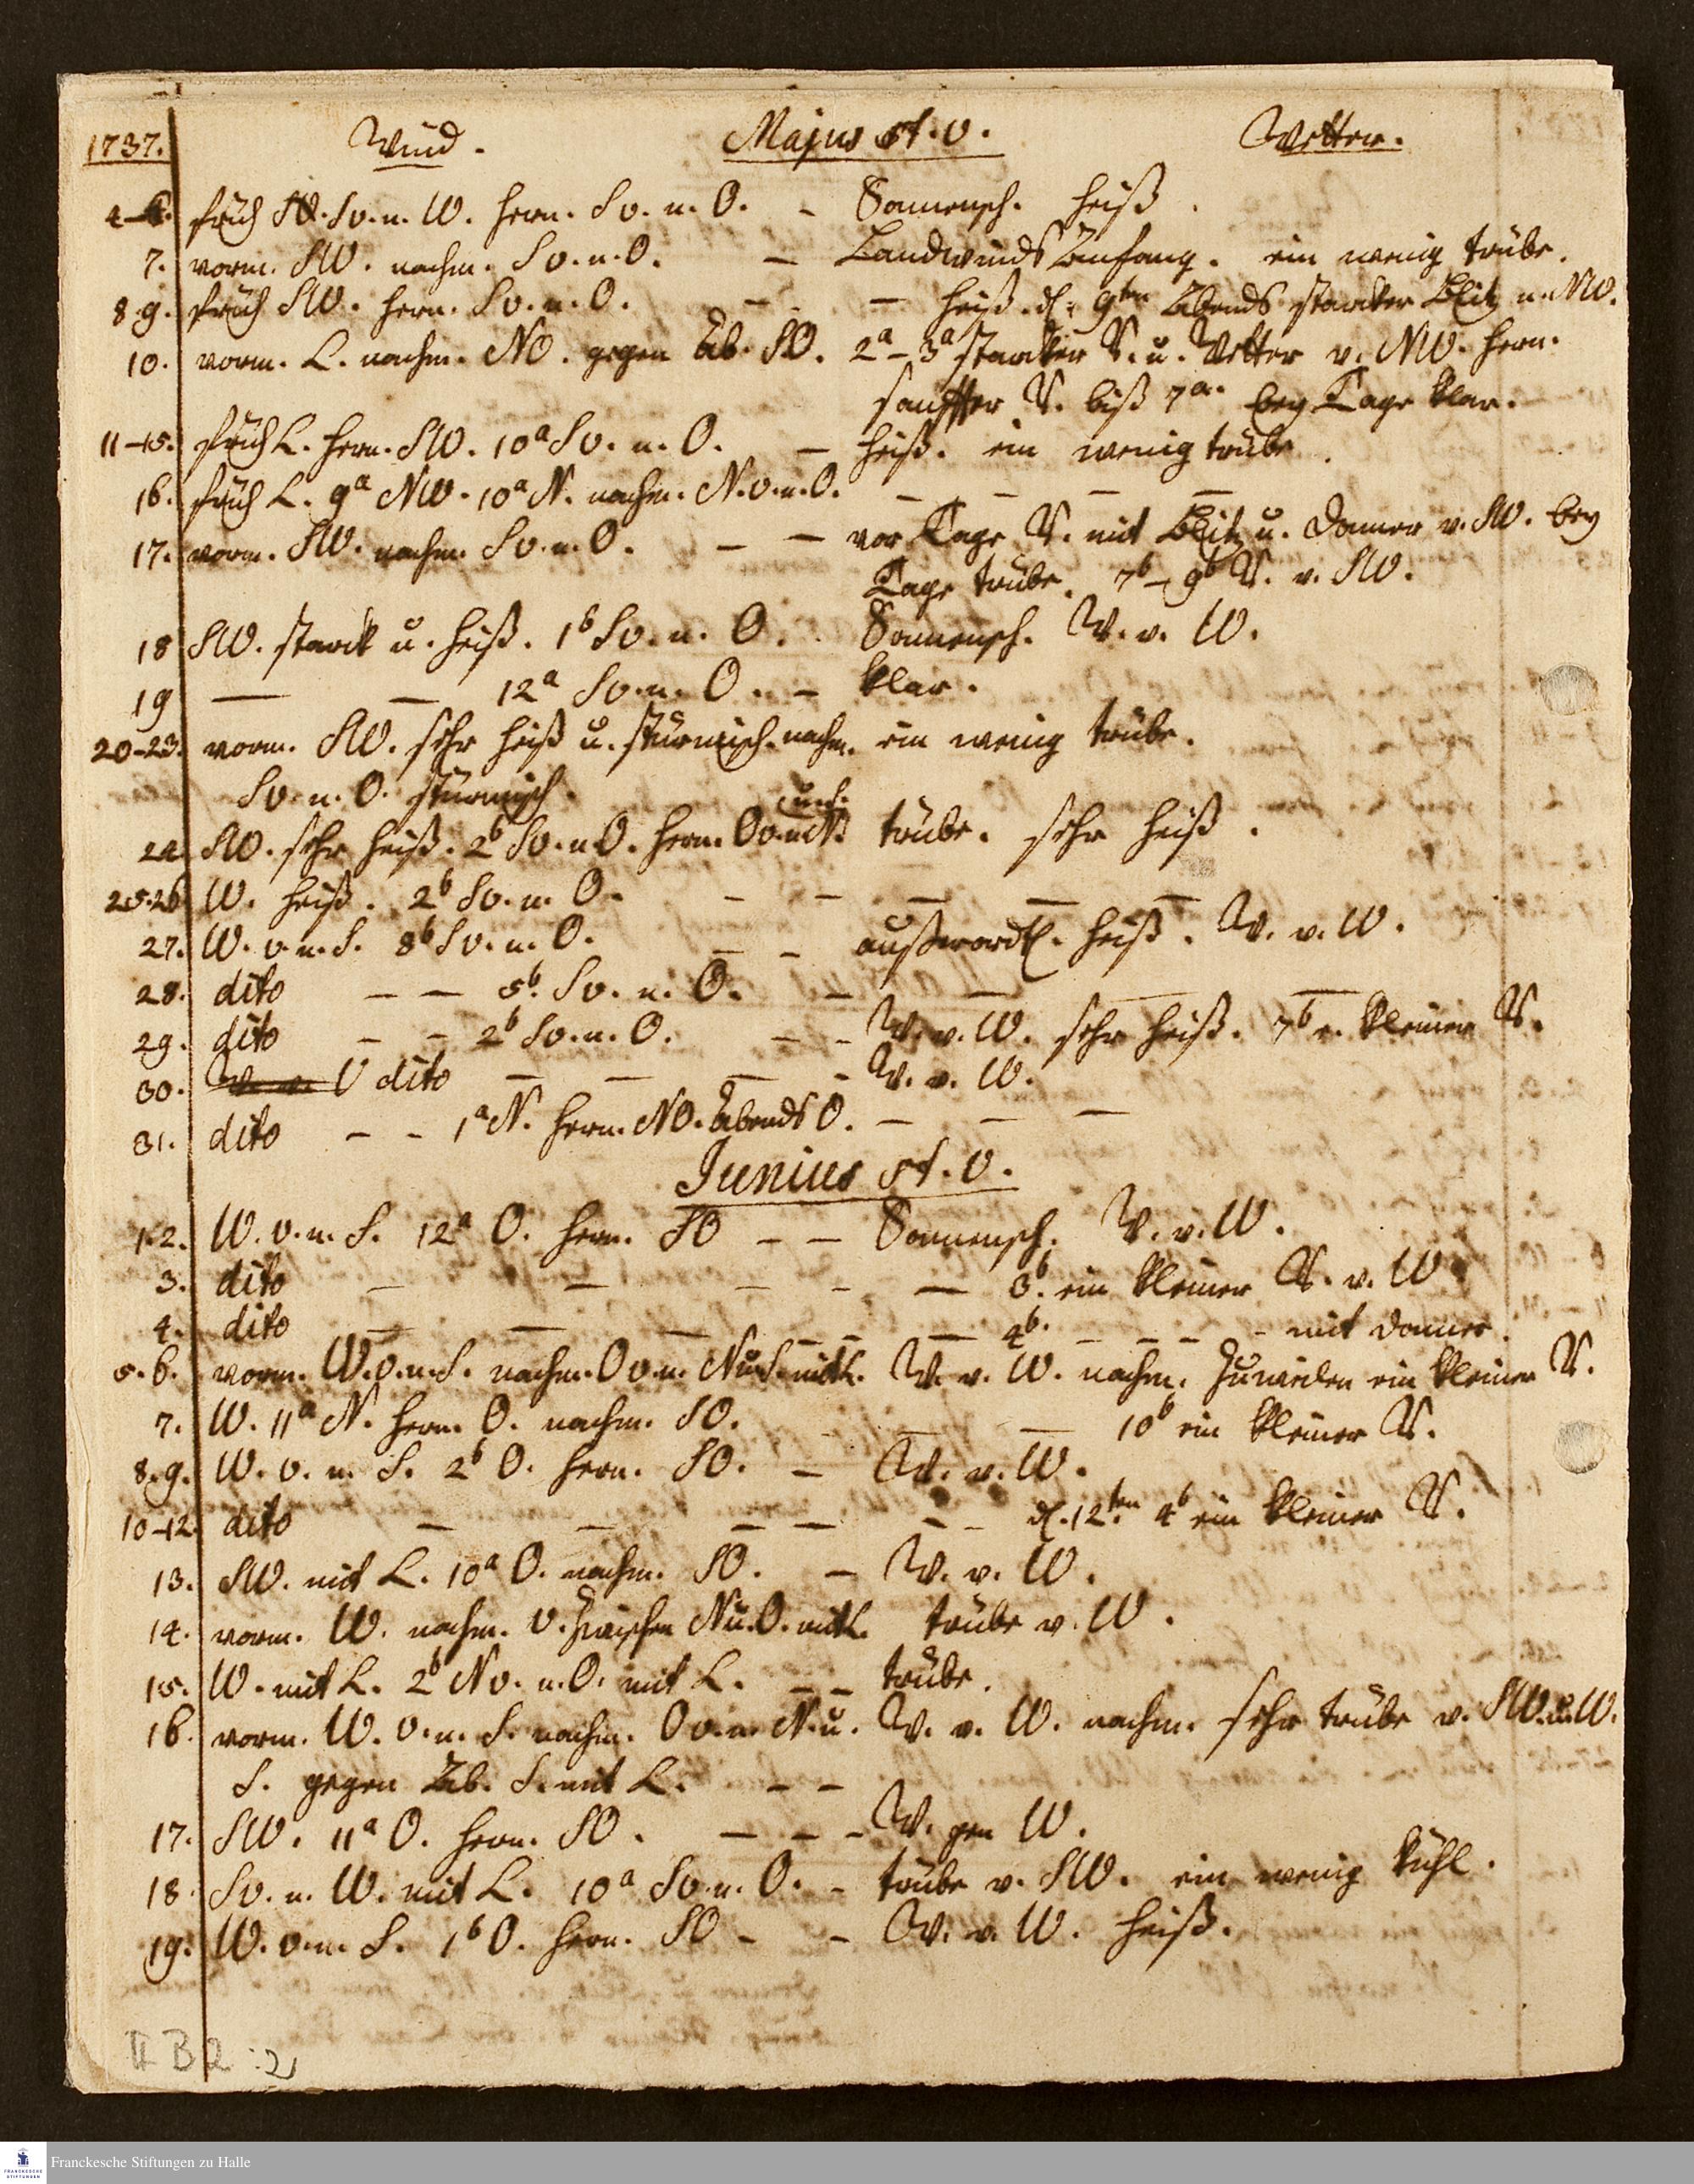 1737. Wind. Majus st. v. Wetter.
4-6. früh SW. S v. n. W. hern. S v. n. O. - Sonnensch. heiß.
7. vorm. SW. nachm. S v. n. O. - Landwinds Anfang. ein wenig trübe.
8. 9. früh SW. hern. S v. n. O. - - heiß. d. 9ten Abends starcker Blitz n. NW.
10. vorm. L. nachm. NO. gegen Ab. SO. 2a - 3a starcker R. u. Wetter v. NW. hern.
sanffter R. biß 7a. bey Tage klar.
11-15. früh L. hern. SW. 10a S v. n. O. - heiß. ein wenig trübe.
16. früh L. 9a NW. 10a N. nachm. N. v. n. O. - - - -
17. vorm. SW. nachm. S v. n. O. - - vor Tage R. mit Blitz u. Donner v. SW. bey
Tage trübe. 7b - 9b R. v. SW.
18 SW. starck u. heiß. 1b S v. n. O. Sonnensch. W. v. W.
19 - - 12a S v. n. O. - klar.
20-23. vorm. SW. sehr heiß u. stürmisch. nachm. ein wenig trübe.
S v. n. O. stürmisch.
24 SW. sehr heiß. 2b S v. n. O. hern. O v. n. N. trübe. sehr heiß.
25. 26 W. heiß. 2b S v. n. O. - - - - -
27. W. v. n. S. 8b S v. n. O. - - außerordtl. heiß. W. v. W.
28. dito - - 5b. S v. n. O. - - - -
29. dito - - 2b S v. n. O. - - W. v. W. sehr heiß. 7b kleiner R.
30. dito - - - - W. v. W.
31. dito - - 1a N. hern. NO. Abends O. - - -
Junius st. v.
1. 2. W. v. n. S. 12a O. hern. SO - - Sonnensch. W. v. W.
3. dito - - - - - 3b. ein kleiner R. v. W
4. dito - - - - - - 4b. - - - - mit Donner.
5. 6. vorm. W. v. n. S. nachm. O v. n. N u. S. mit L. W. v. W. nachm. zuweilen ein kleiner R.
7. W. 11a N. hern. O. nachm. SO. - - - 10b ein kleiner R.
8. 9. W. v. n. S. 2b O. hern. SO. - W. v. W.
10-12. dito - - - - - - d. 12ten. 4b ein kleiner R.
13. SW. mit L. 10a O. nachm. SO. - W. v. W.
14. vorm. W. nachm. v. zwischen N u. O. mit L. trübe v. W.
15. W. mit L. 2b N v. n. O. mit L. - - trübe.
16. vorm. W. v. n. S. nachm. O v. n. N. u. W. v. W. nachm. sehr trübe v. SW. u. W.
S. gegen Ab. S. mit L. - -
17. SW. 11a O. hern. SO. - - - W. gen W.
18. S v. n. W. mit L. 10a S v. n. O. - trübe v. SW. ein wenig kühl.
19. W. v. n. S. 1b O. hern. SO - - W. v. W. heiß.
II B 2 : 2
Franckesche Stiftungen zu Halle